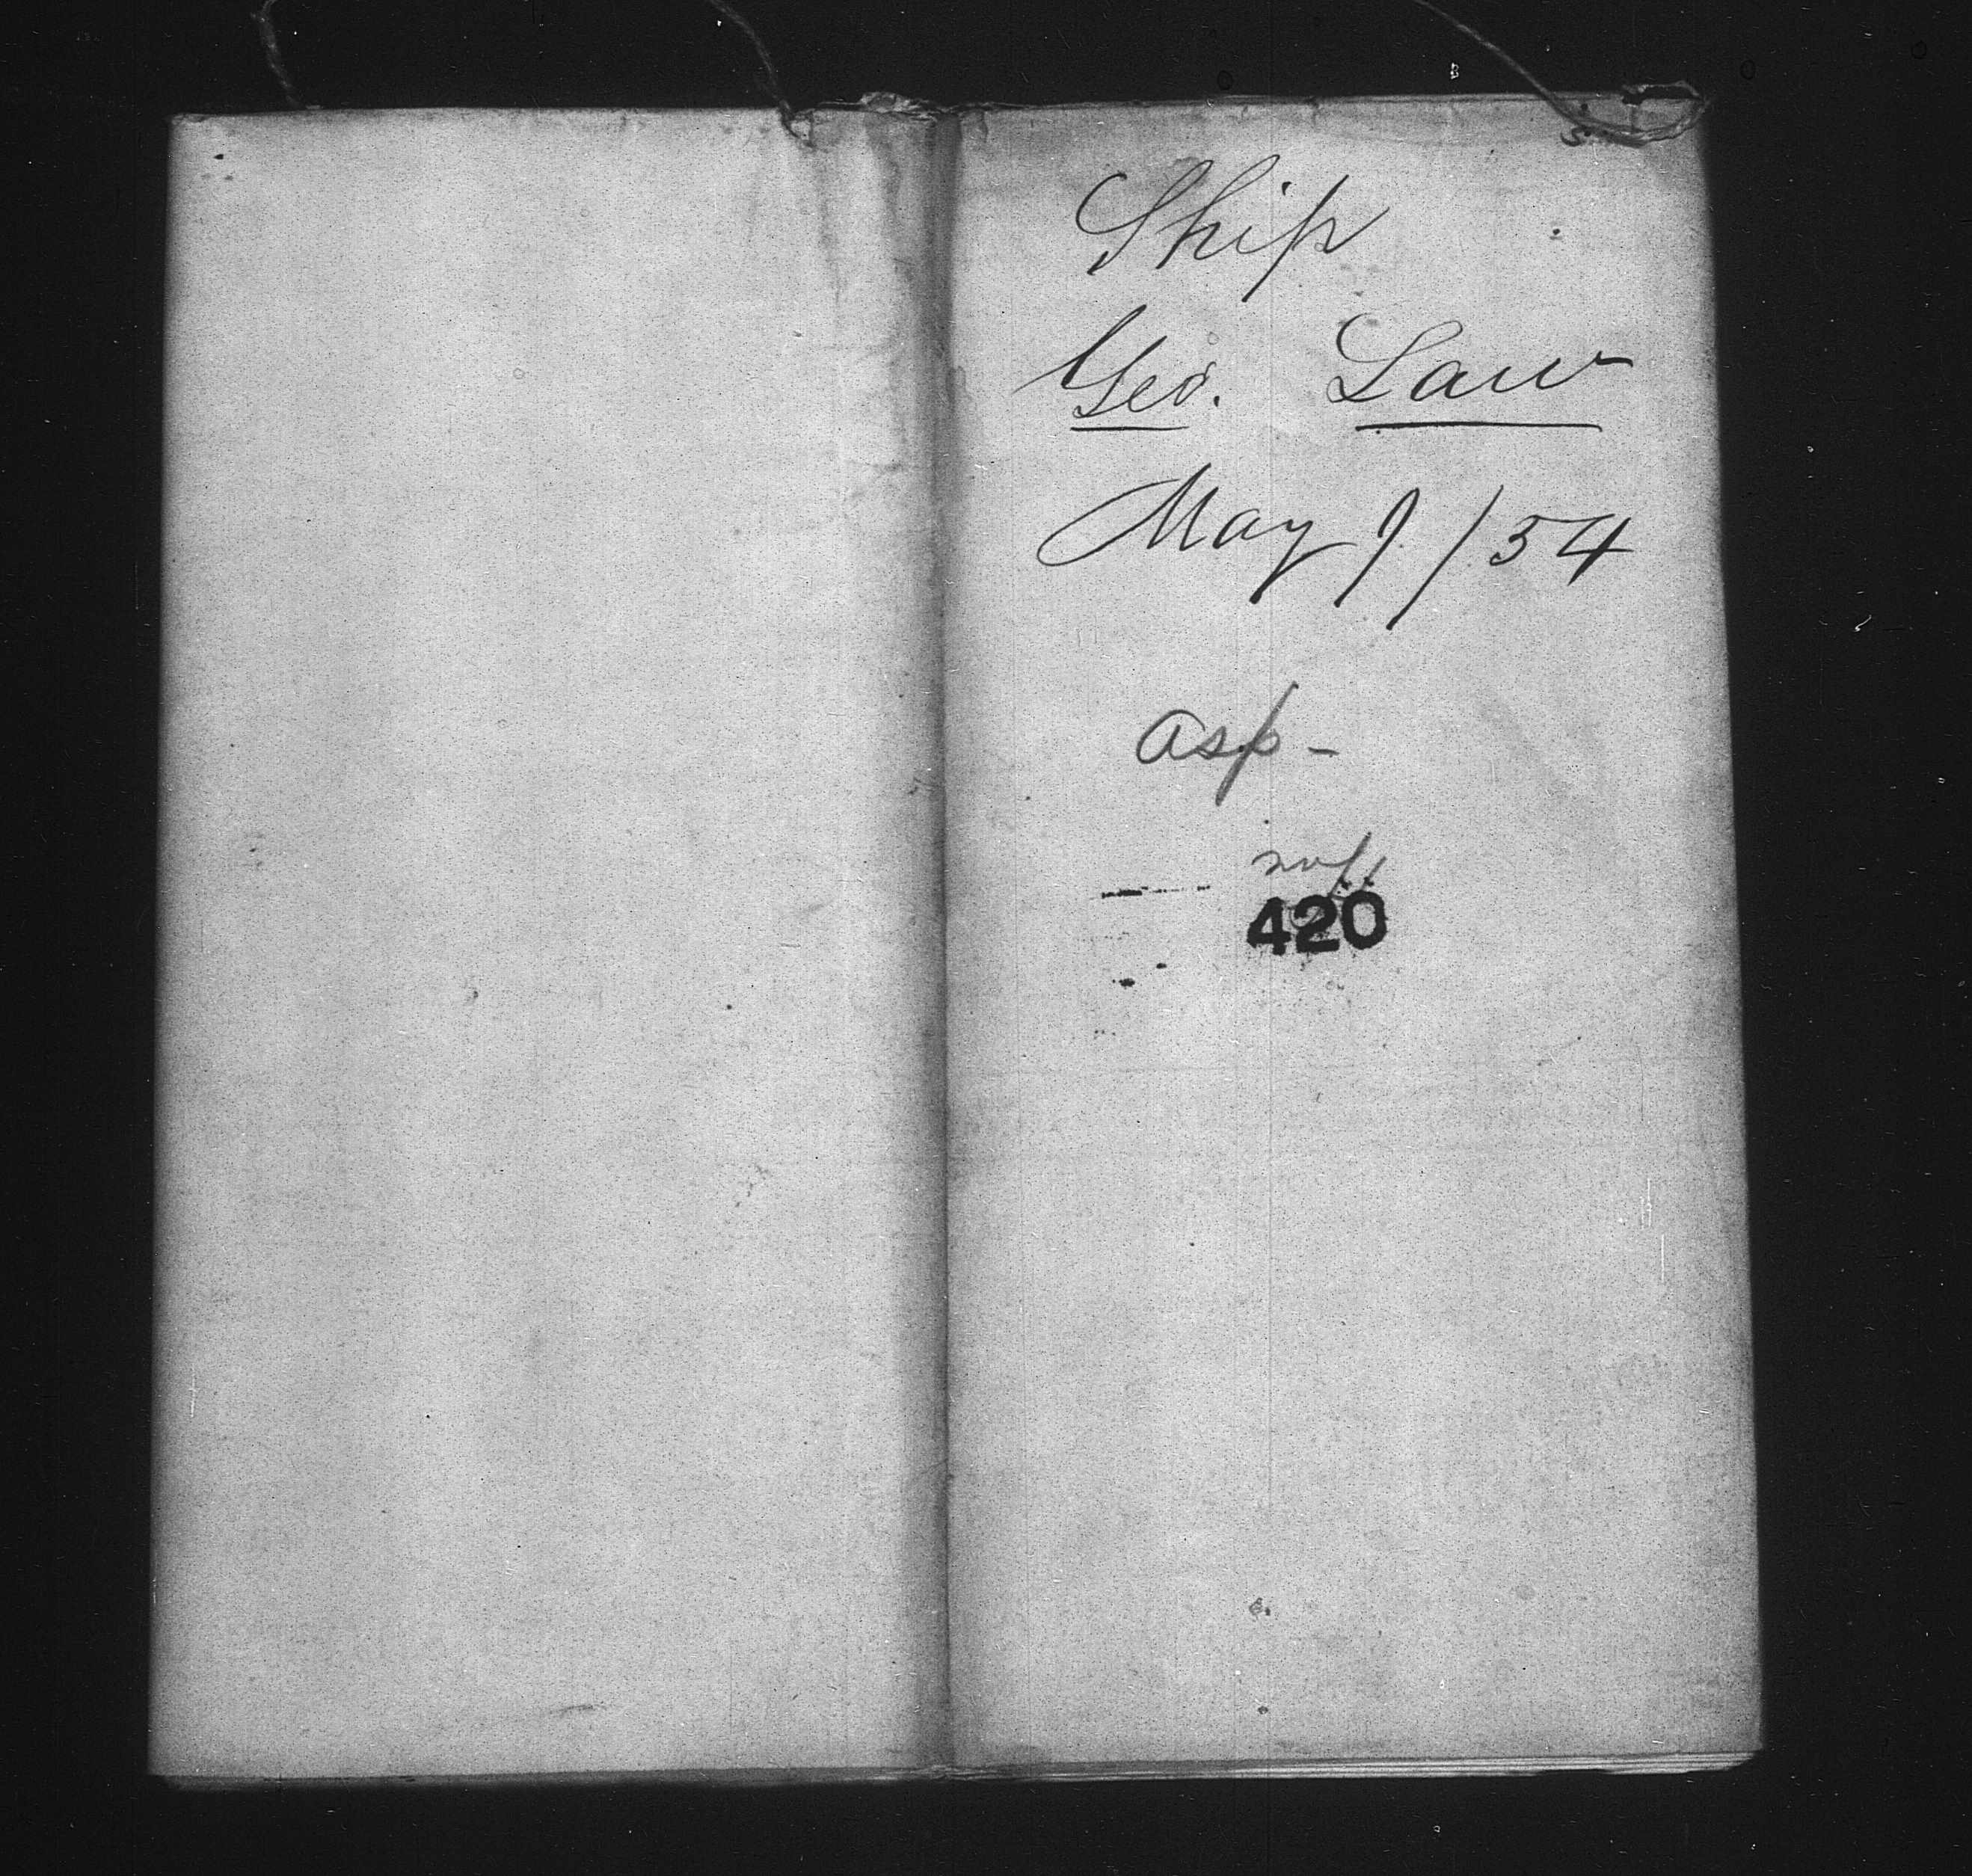 Ship
Geo. Law
May 9/54
Asp -
420